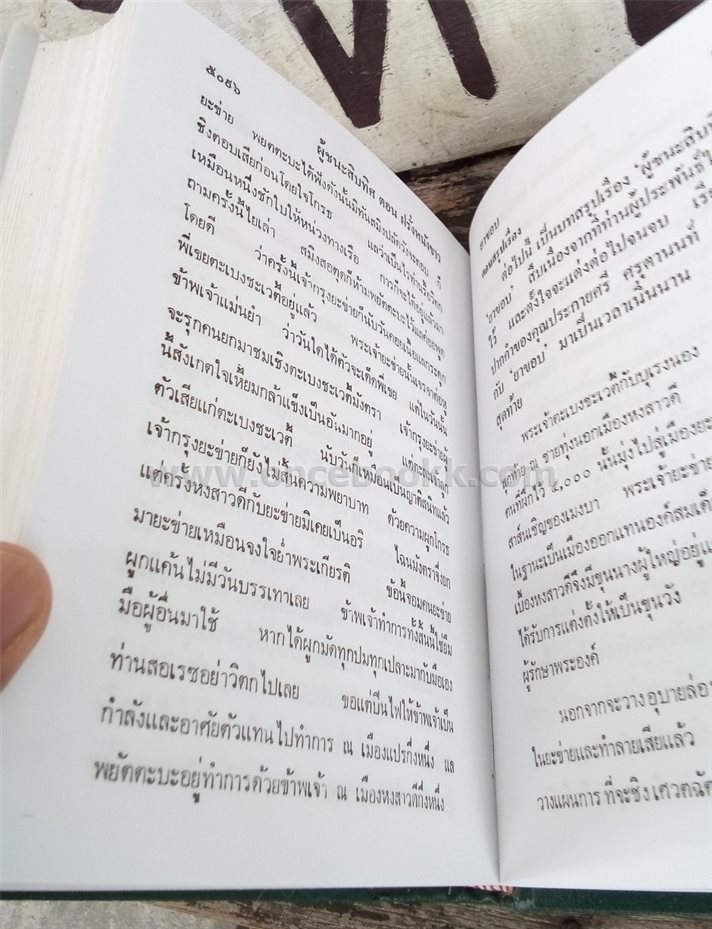 ๕๐๙๖
ผู้ชนะสิบทิศ ตอน ฝรั่งหลังขาว
ยะข่าย พยัตตะบะได้ฟังดังนั้นมิทันสมิงปลัดวังจะตอบ ก็
ชิงตอบเสียก่อนโดยใจโกรธ แลว่าเป็นไรท่าน
เหมือนหนึ่งชักใบให้หน่วงทางเรือ การก็จะได้
ถามครั้งนี้ไยเล่า สมิงสอตุดก็ห้ามพยัตตะบะไว้
โดยดี ว่าครั้งนี้เจ้ากรุงยะข่ายก็นับวันคอย
พี่เขยตะเบงชะเวตี้อยู่แล้ว พระเจ้ายะข่ายนั้น
ข้าพเจ้าแม่นยำ ว่าวันใดได้ตัวจะเด็ดพี่เขย แต่ในวันนั้น
จะรุกคนยกมาชมเชิงตะเบงชะเวตี้มังตรา เจ้ากรุงยะข่าย
นี้สังเกตใจเหี้ยมกล้าแข็งเป็นอันมากอยู่ แต่
ตัวเสียแก่ตะเบงชะเวตี้ นับวันก็เหมือนเป็นญาติสนิทแล้ว
เจ้ากรุงยะข่ายก็ยังไม่สิ้นความพยาบาท ด้วยความผูกโกรธ
แต่ครั้งหงสาวดีกับยะข่ายมิเคยเป็นอริ ไฉนมังตราจึงยก
มายะข่ายเหมือนจงใจย่ำพระเกียรติ ข้อนี้จอมคนยะข่าย
ผูกแค้นไม่มีวันบรรเทาเลย ข้าพเจ้าทำการทั้งสิ้นนี้ใช่ยืม
มือผู้อื่นมาใช้ หากได้ผูกมัดทุกปมทุกเปลาะมากับมือเอง
ท่านสอเรซอย่าวิตกไปเลย ขอแต่ปืนไฟให้ข้าพเจ้าเป็น
กำลังและอาศัยตัวแทนไปทำการ ณ เมืองแปรกึ่งหนึ่ง แล
พยัตตะบะอยู่ทำการด้วยข้าพเจ้า ณ เมืองหงสาวดีกึ่งหนึ่ง
ยาขอบ
ตอนสรุปเรื่อง
ต่อไปนี้ เป็นบทสรุปเรื่อง 'ผู้ชนะสิบ
'ยาขอบ' สืบเนื่องจากที่ท่านผู้ประพันธ์
ไว้ และตั้งใจจะแต่งต่อไปจนจบ
ปากคำของคุณประกายศรี ศรุตานนท์
กับ 'ยาขอบ' มาเป็นเวลาเนิ่นนาน
สุดท้าย
พระเจ้าตะเบงชะเวตี้กับบุเรงนอง
ชายทุ่งนอกเมืองหงสาวดี
คนที่ฝึกไว้ ๕,๐๐๐ นั้นมุ่งไปสู่เมืองยะ
สาส์นเชิญของเมงบา พระเจ้ายะข่าย
ในฐานะเป็นเมืองออกแทนองค์สมเด็
เมืองหงสาวดีจึงมีขุนนางผู้ใหญ่อยู่
ได้รับการแต่งตั้งให้เป็นขุนวัง
ผู้รักษาพระองค์
นอกจากจะวางอุบายล่อ
ในยะข่ายและทำลายเสียแล้ว
วางแผนการ ที่จะชิง เศวตฉัต
www.oncebookk.com